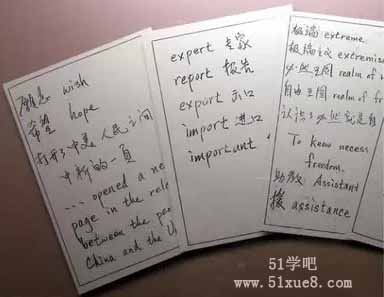 愿意 wish
希望 hope
打开了中美人民之间
中新的一頁
... opened a ne
page in the rele
between the pe
China and the U
expert 专家
report 报告
export 出口
import 进口
important
极端 extreme
极端主义 extremis
必然王国 realm of
自由王国 realm of fr
认识了必然就是自
To know necess
freedom.
助教 Assistant
援 assistance
51学吧
www.51xue8.com